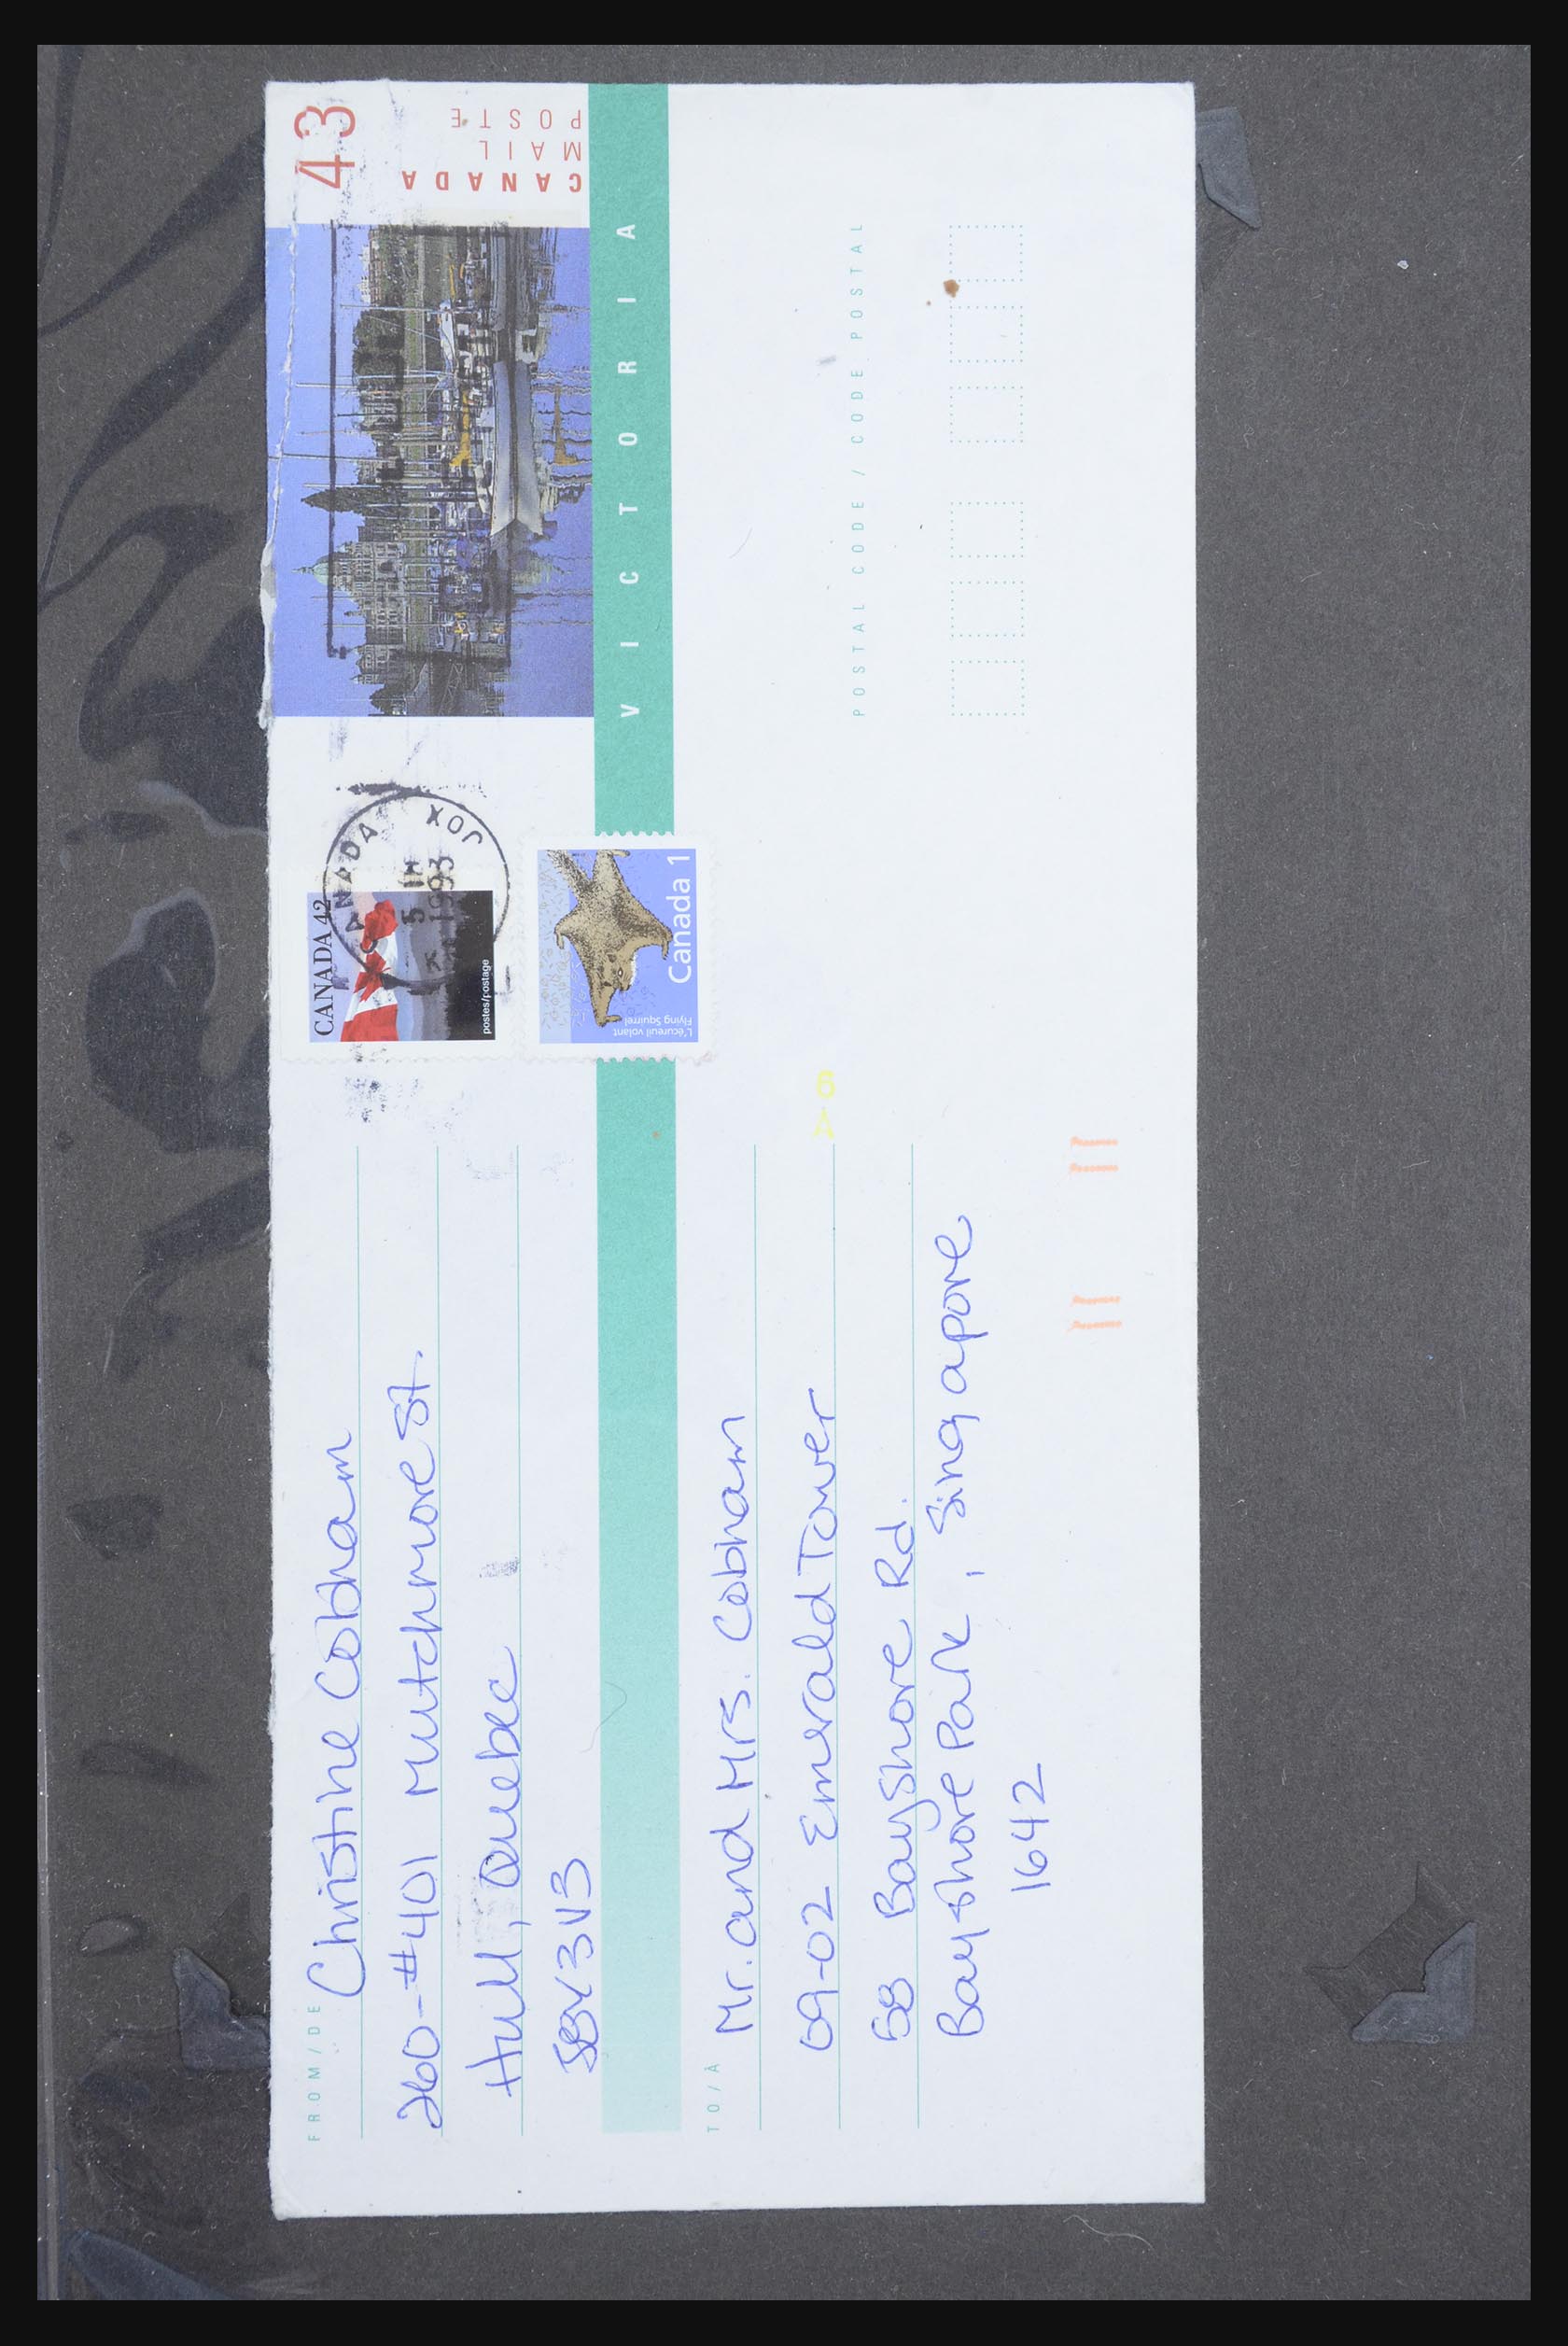 FROM/DE
Christine Cobham
260-#401 Mutchmore St.
Hull, Quebec
J8Y3V3
CANADA 42
postes/postage
CANADA
JOX
5 III
1993
L'écureuil volant
Flying Squirrel
Canada 1
43
CANADA
MAIL
POSTE
VICTORIA
TO/À
Mr. and Mrs. Cobham
09-02 Emerald Tower
58 Bayshore Rd.
Bayshore Park, Singapore
1642
POSTAL CODE / CODE POSTAL